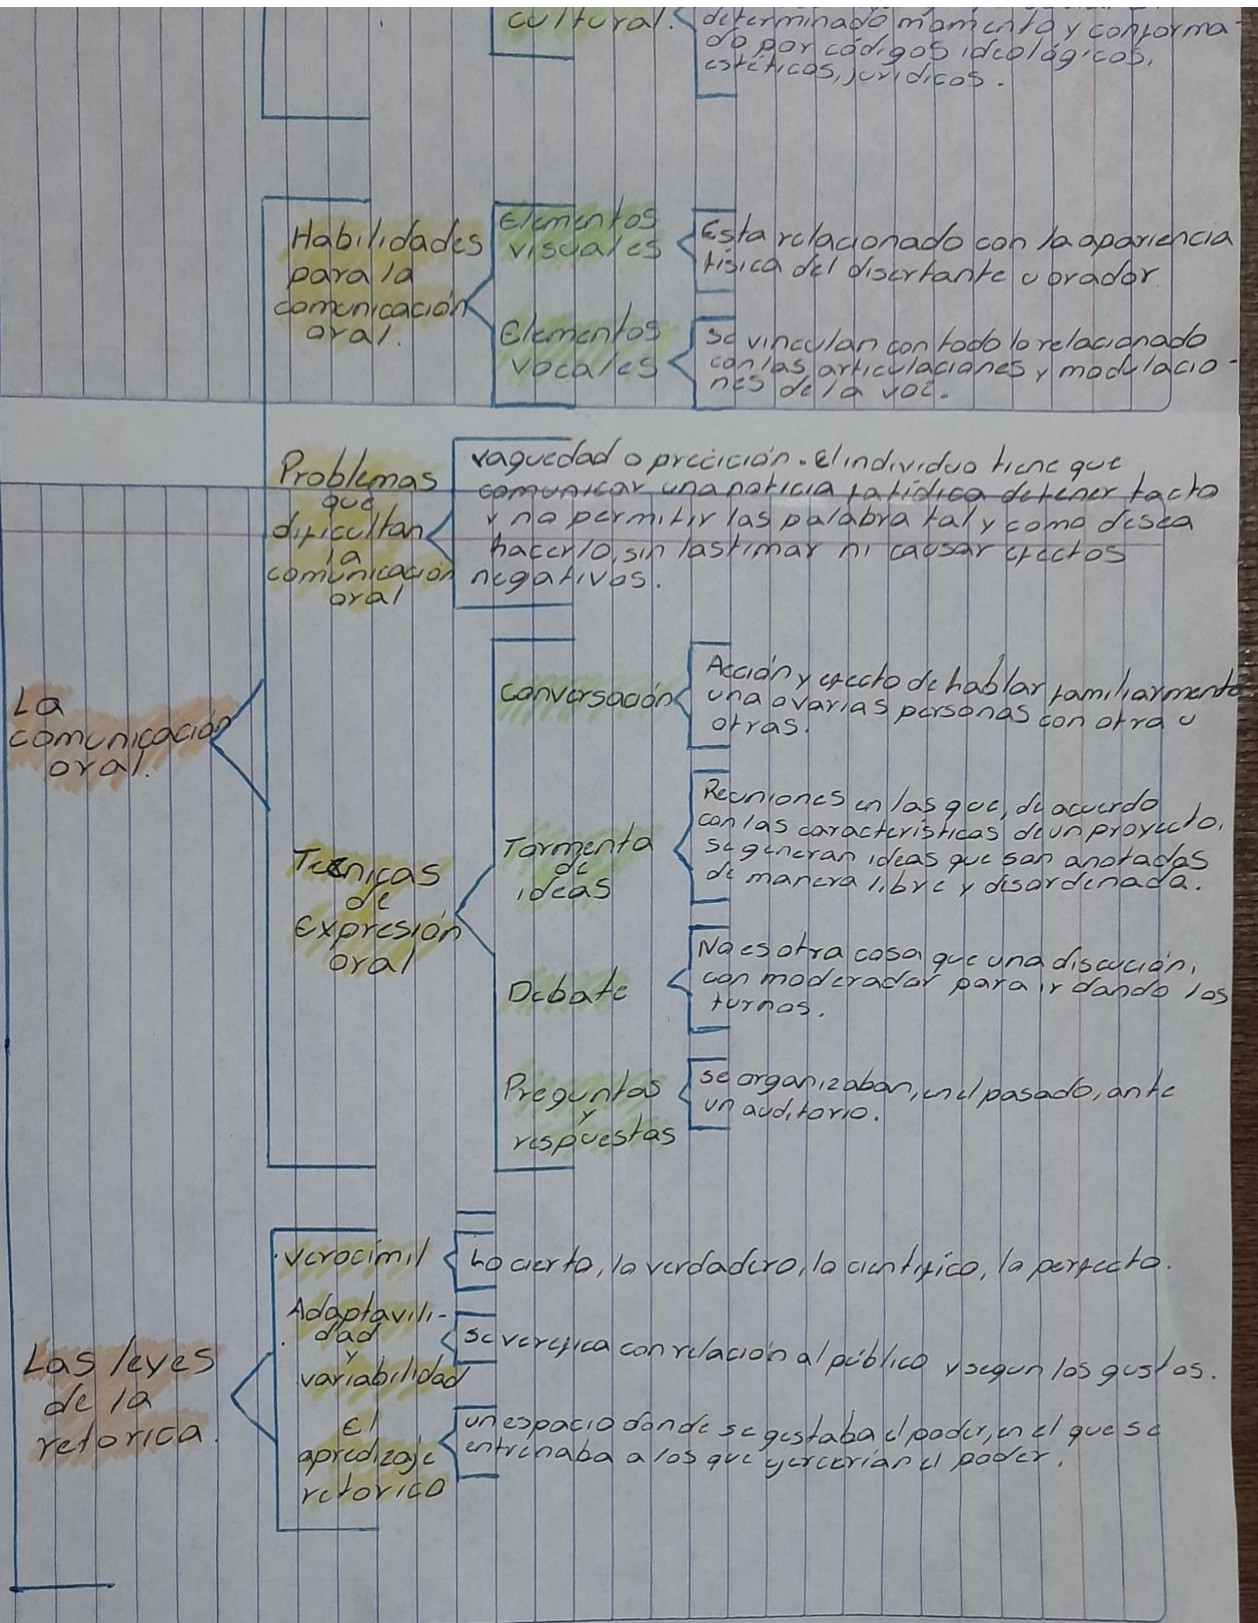 cultural.
determinado momento y conforma-
do por códigos ideológicos,
estéticos, jurídicos.
Habilidades
para la
comunicación
oral.
Elementos
visuales
Esta relacionado con la apariencia
física del disertante u orador
Elementos
vocales
se vinculan con todo lo relacionado
con las articulaciones y modulacio-
nes de la voz.
Problemas
que
dificultan
la
comunicación
oral
vaguedad o precición. El individuo tiene que
comunicar una noticia fatídica detener tacto
y no permitir las palabra tal y como desea
hacerlo, sin lastimar ni causar efectos
negativos.
La
comunicación
oral.
Tecnicas
de
Expresión
oral
conversación
Acción y efecto de hablar familiarmente
una o varias personas con otra u
otras.
Tormenta
de
ideas
Reuniones en las que, de acuerdo
con las características de un proyecto,
se generan ideas que son anotadas
de manera libre y disordenada.
Debate
No es otra cosa que una discución,
con moderador para ir dando los
turnos.
Preguntas
y
respuestas
se organizaban, en el pasado, ante
un auditorio.
Las leyes
de la
retorica.
Verocímil
Lo cierto, lo verdadero, lo científico, lo perfecto.
Adaptavili-
dad
y
variabilidad
se verefica con relación al público y segun los gustos.
El
apredizaje
retorico
un espacio donde se gestaba el poder, en el que se
entrenaba a los que ejercerían el poder.